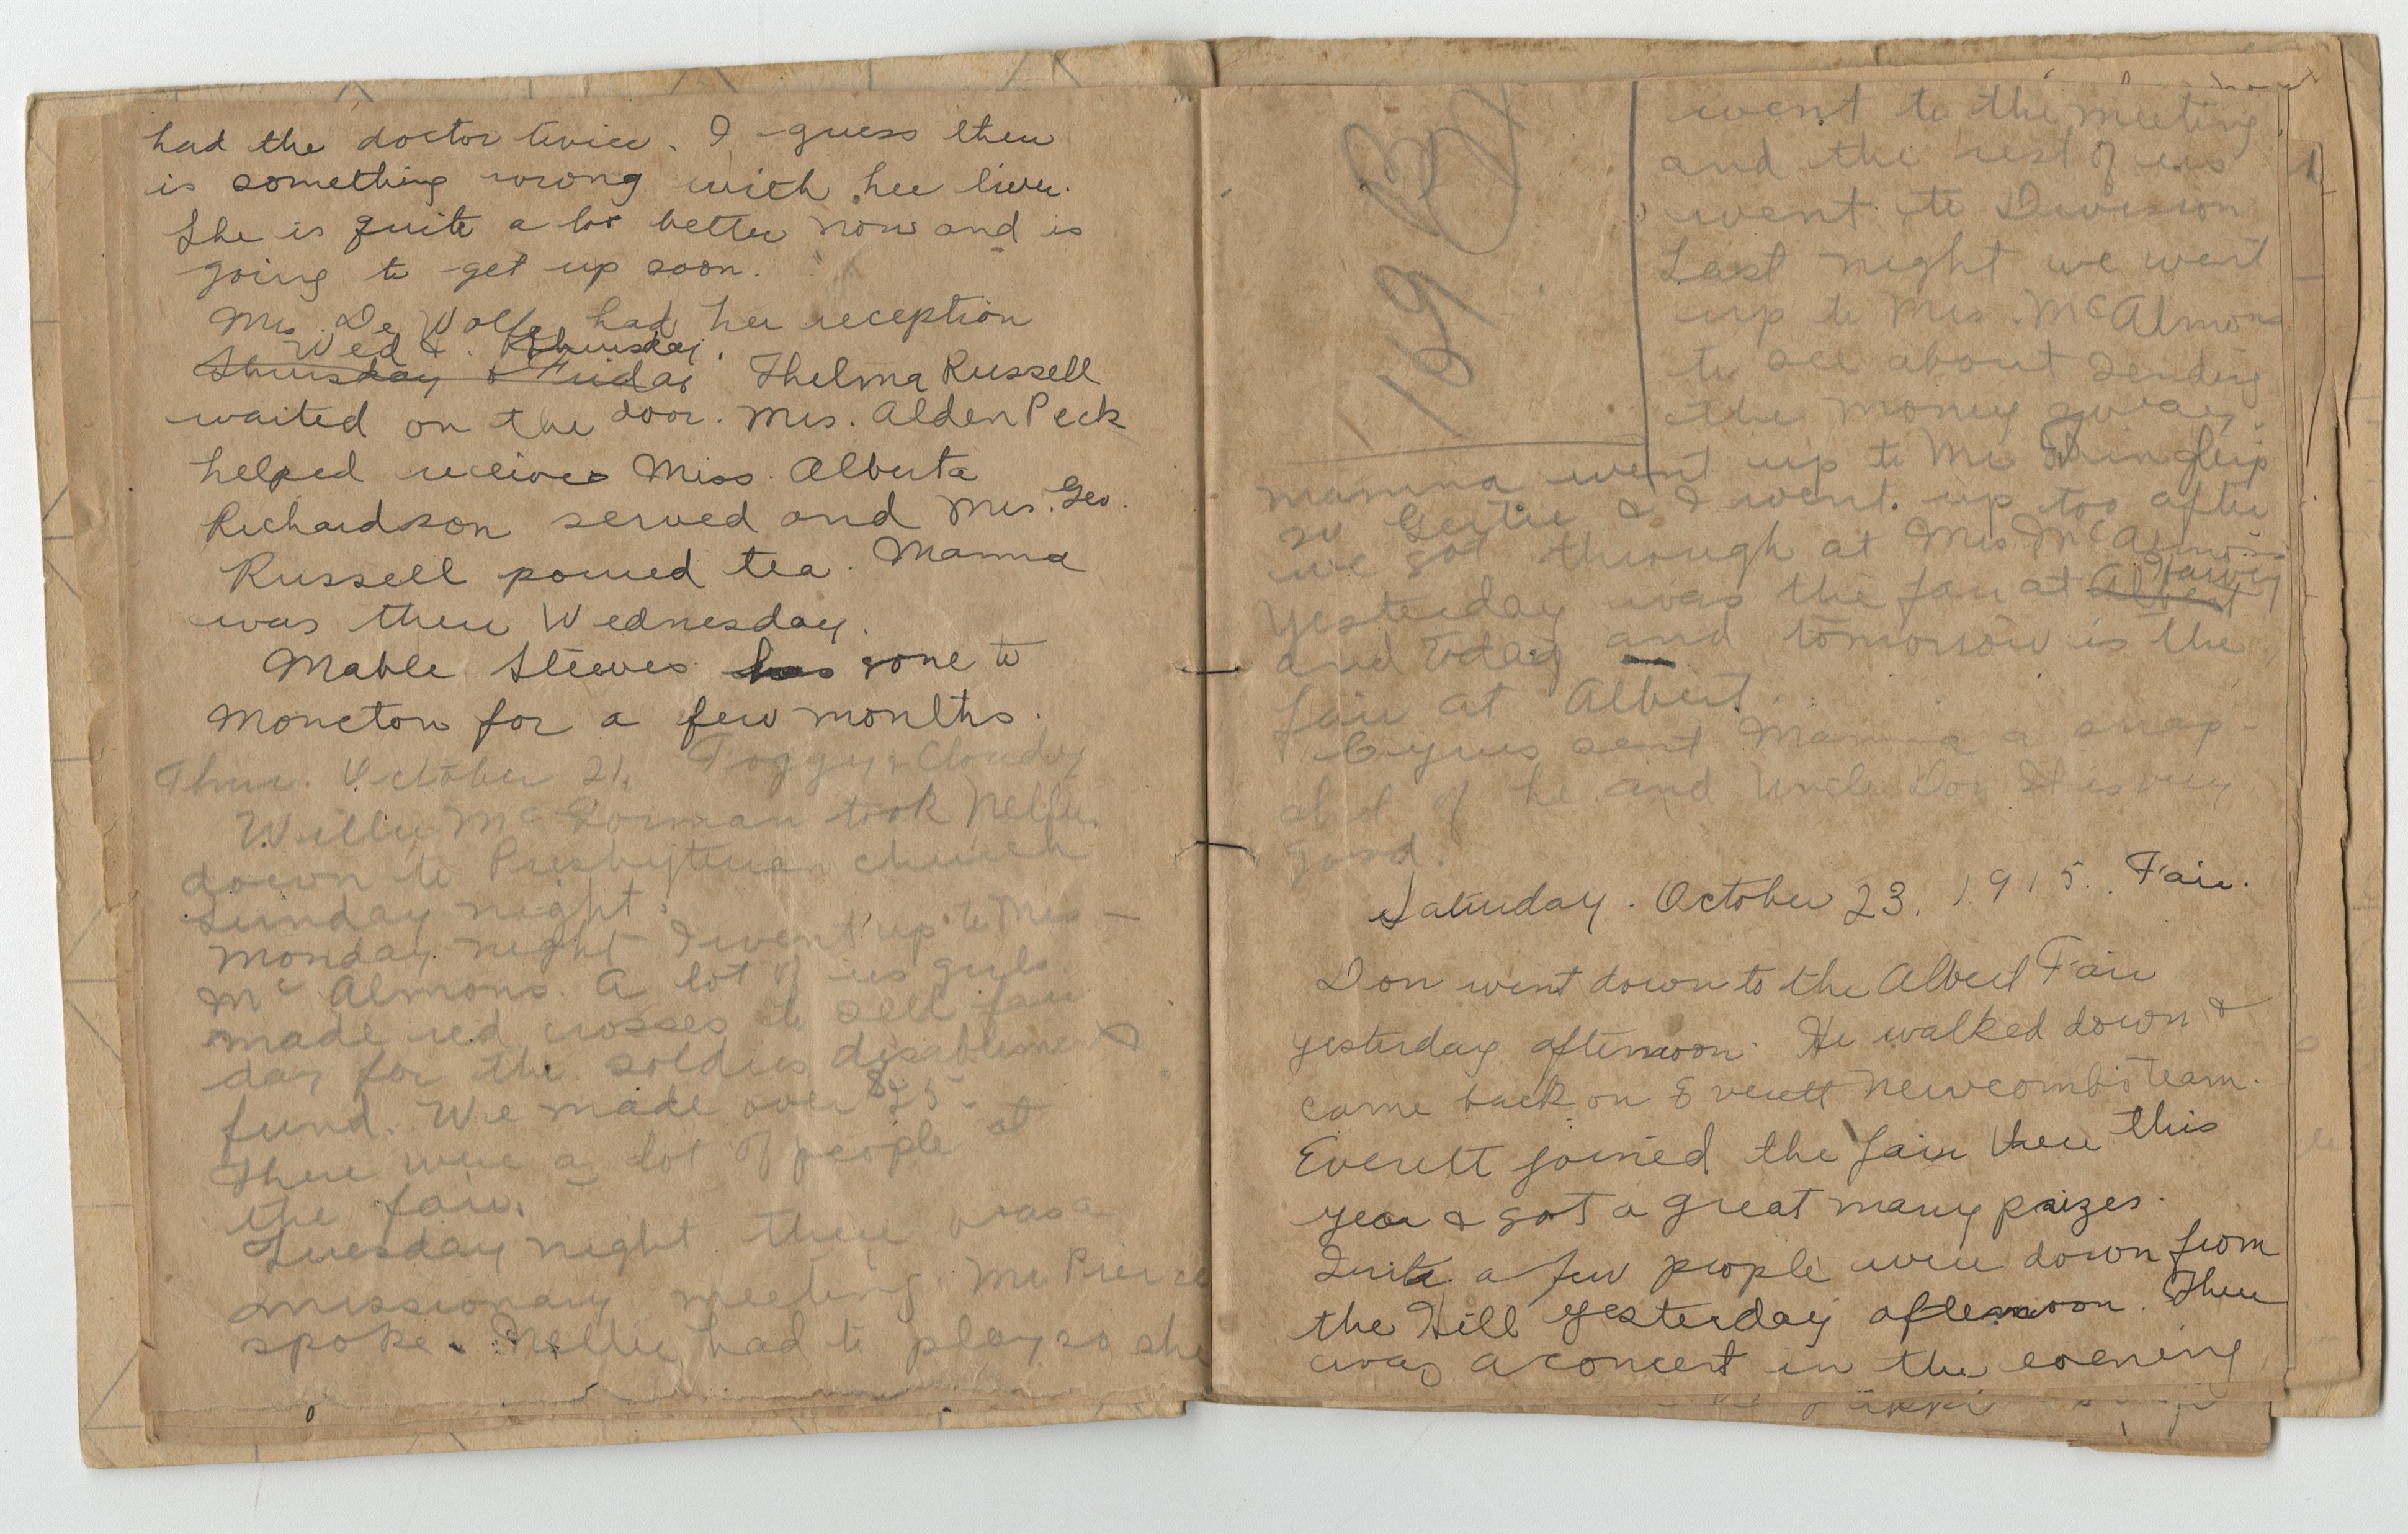 had the doctor twice. I guess there
is something wrong with her liver.
She is quite a lot better now and is
going to get up soon.
Mrs. De Wolfe had her reception
Wed &. Thursday.
Thursday & Friday Thelma Russell
waited on the door. Mrs. Alden Peck
helped receive Miss. Alberta
Richardson served and Mrs. Geo.
Russell poured tea. Mamma
was there Wednesday.
Mable Steeves has gone to
Moncton for a few months.
Thur. October 21. Foggy & Cloudy
Willie McGorman took Nellie.
down to Presbyterian church
Sunday night.
Monday night I went up to Mrs
McAlmons. A lot of us girls
made red crosses to sell fair
day for the soldiers disablement
fund. We made over $25
There were a lot of people at
the fair.
Tuesday night there was a
missionary meeting. Mr Pierce
spoke. Nellie had to play so she
went to the meeting
and the rest of us
went to Division
Last night we went
up to Mrs. McAlmons
to see about sending
the money away.
mamma went up to Mr
so Gertie & I went up too after
we got through at Mrs McAlmons
Yesterday was the fair at Albert Harvey
and today and tomorrow is the
fair at Albert.
Cyrus sent Mamma a snap-
shot of he and Uncle Don It is very
good.
Saturday. October 23. 1915. Fair.
Don went down to the Albert Fair
yesterday afternoon. He walked down &
came back on Everett Newcomb's team.
Everett joined the fair there this
year & got a great many prizes.
Quite a few people were down from
the Hill yesterday afternoon. There
was a concert in the evening